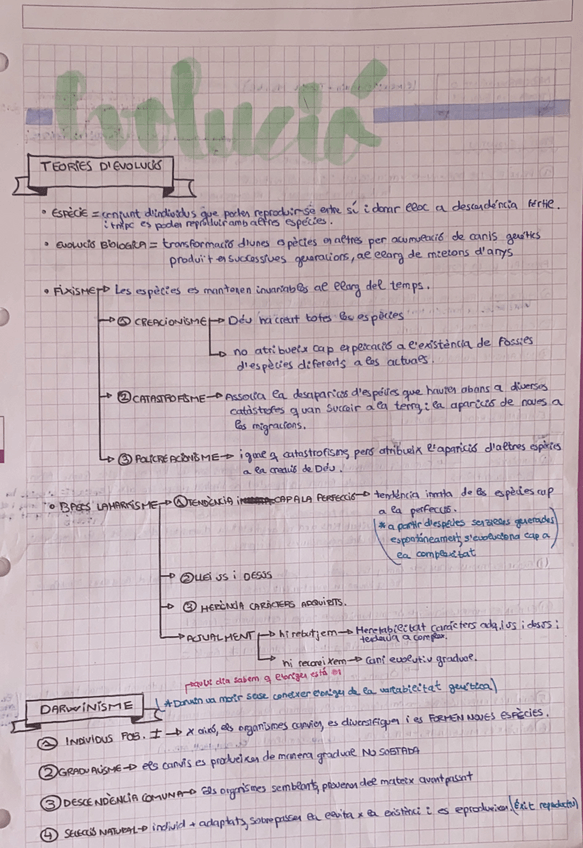 Evolució
TEORIES D'EVOLUCIÓ
• ESPÈCIE = conjunt d'individus que poden reproduir-se entre sí i donar lloc a descendència fèrtil.
i no es poden reproduir amb altres espècies.
• EVOLUCIÓ BIOLÒGICA = transformació d'unes espècies en altres per acumulació de canvis genètics
produït en successives generacions, al llarg de milions d'anys
• FIXISME → Les espècies es mantenen invariables al llarg del temps.
① CREACIONISME → Déu ha creat totes les espècies
→ no atribueix cap explicació a l'existència de fòssils
d'espècies diferents a les actuals.
② CATASTROFISME → Associa la desaparició d'espècies que havien abans a diverses
catàstrofes q van succeir a la terra; i la aparició de noves a
les migracions.
③ POLICREACIONISME → igual q catastrofisme, però atribueix l'aparició d'altres espècies
a la creació de Déu.
• BASES LAMARKISME → ① TENDÈNCIA CAP A LA PERFECCIÓ → tendència innata de les espècies cap
a la perfecció.
(* a partir d'espècies senzilles generades
espontàneament, s'evoluciona cap a
la complexitat)
→ ② LLEI ÚS I DESÚS
→ ③ HERÈNCIA CARÀCTERS ADQUIRITS.
→ ACTUALMENT → hi rebutjem → Heretabilitat caràcters adq, l'ús i desús i
tendència a complex.
→ hi reconeixem → Canvi evolutiu gradual.
DARWINISME
* Darwin va morir sense conèixer l'origen de la variabilitat genètica)
① INDIVIDUS POB. ± → x això, els organismes canvien, es diversifiquen i es FORMEN NOVES ESPÈCIES.
② GRADUALISME → els canvis es produeixen de manera gradual NO SOBTADA
③ DESCENDÈNCIA COMUNA → Els organismes semblants, provenen del mateix avantpassat
④ SELECCIÓ NATURAL → individ + adaptats, sobrepassen en lluita x la existència i es reprodueixen (èxit reproductiu)